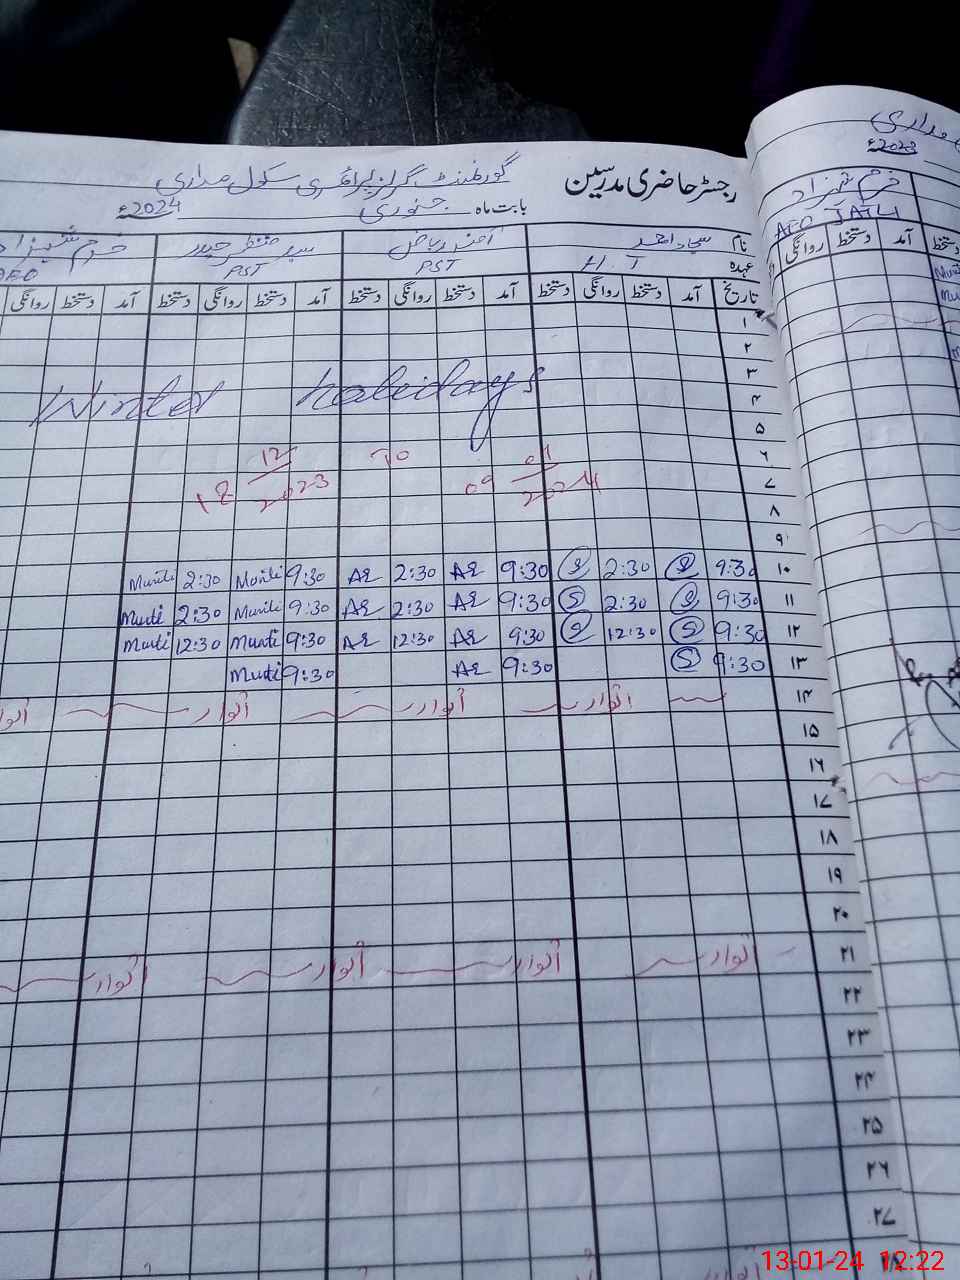 رجسٹر حاضری مدرسین گورنمنٹ گرلز پرائمری سکول مداری
بابت ماہ جنوری 2024ء
نام سجاد احمد
عہدہ H.T PST PST
تاریخ آمد دستخط روانگی دستخط آمد دستخط روانگی دستخط آمد دستخط روانگی دستخط آمد دستخط روانگی
۱
۲
۳
Winter holidays
۴
۵
۶
18 12/2023 To 09 01/2024
۷
۸
۹
۱۰ 9:30 S 2:30 S 9:30 AR 2:30 AR 9:30 2:30
۱۱ 9:30 S 2:30 S 9:30 AR 2:30 AR 9:30 2:30
۱۲ 9:30 S 12:30 S 9:30 AR 12:30 AR 9:30 12:30
۱۳ 9:30 S 9:30 AR 9:30
۱۴ اتوار اتوار اتوار اتوار
۱۵
۱۶
۱۷
۱۸
۱۹
۲۰
۲۱ اتوار اتوار اتوار اتوار
۲۲
۲۳
۲۴
۲۵
۲۶
۲۷
مداری
2023ء
خرم شہزاد
آمد دستخط روانگی
13-01-24 12:22